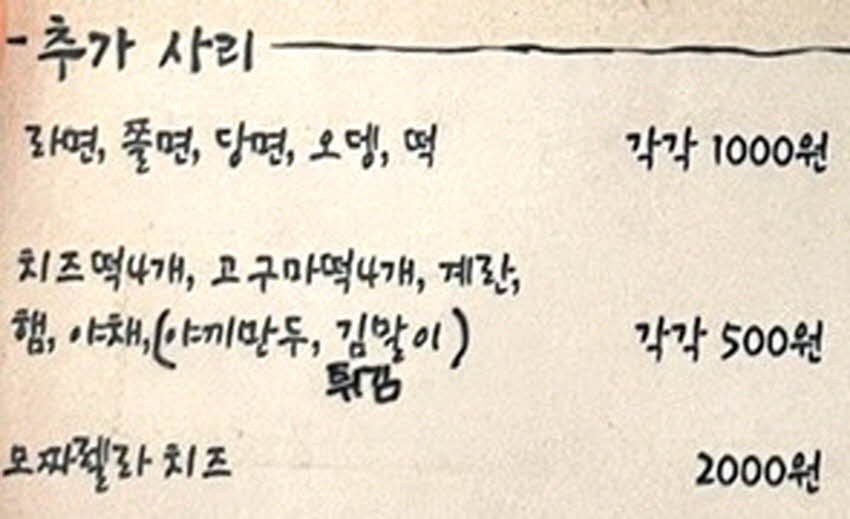 - 추가 사리
라면, 쫄면, 당면, 오뎅, 떡 각각 1000원
치즈떡4개, 고구마떡4개, 계란,
햄, 야채,(야끼만두, 김말이) 각각 500원
튀김
모짜렐라 치즈 2000원